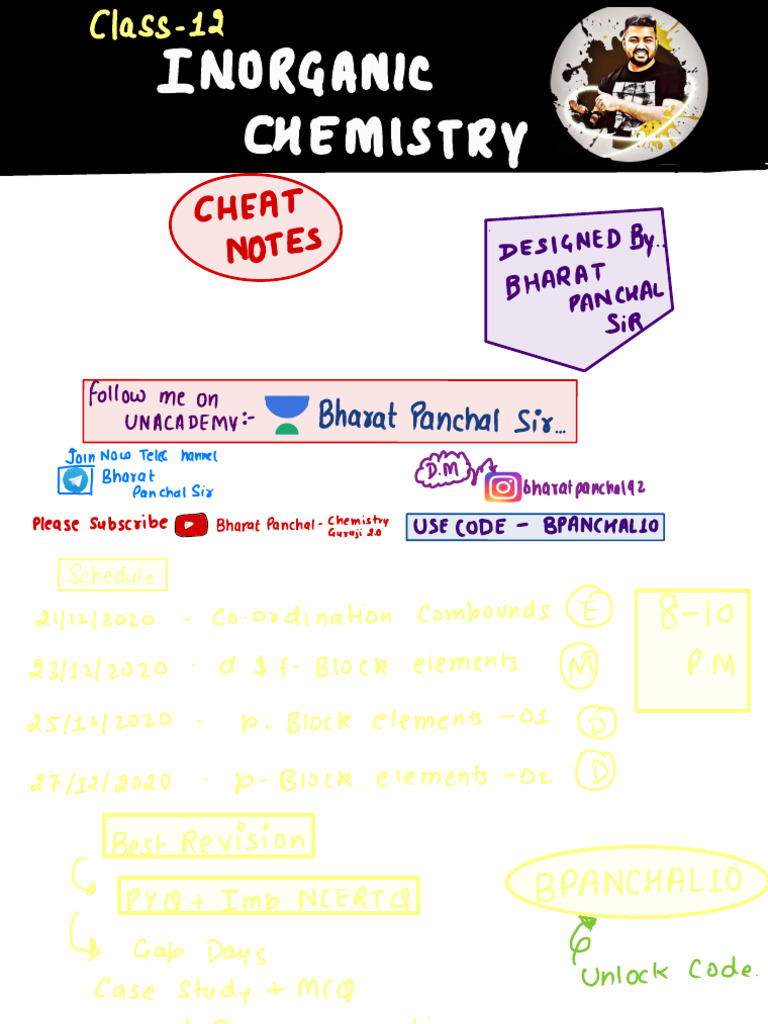 Class-12
INORGANIC
CHEMISTRY
CHEAT
NOTES
DESIGNED By..
BHARAT
PANCHAL
SiR
Follow me on
UNACADEMY:-
Bharat Panchal Sir...
Join Now Tele Channel
Bharat
Panchal Sir
D.M
bharatpanchal92
Please Subscribe
Bharat Panchal - Chemistry
Guruji 2.0
USE CODE - BPANCHAL10
Schedule
21/12/2020 - Co-ordination Compounds E
23/12/2020 - d & f- Block elements M
25/12/2020 - p- Block elements -01 D
27/12/2020 - p- Block elements -02 D
8-10
P.M
Best Revision
PYQ + Imp NCERTQ
Gap Days
Case study + MCQ
BPANCHAL10
Unlock Code.